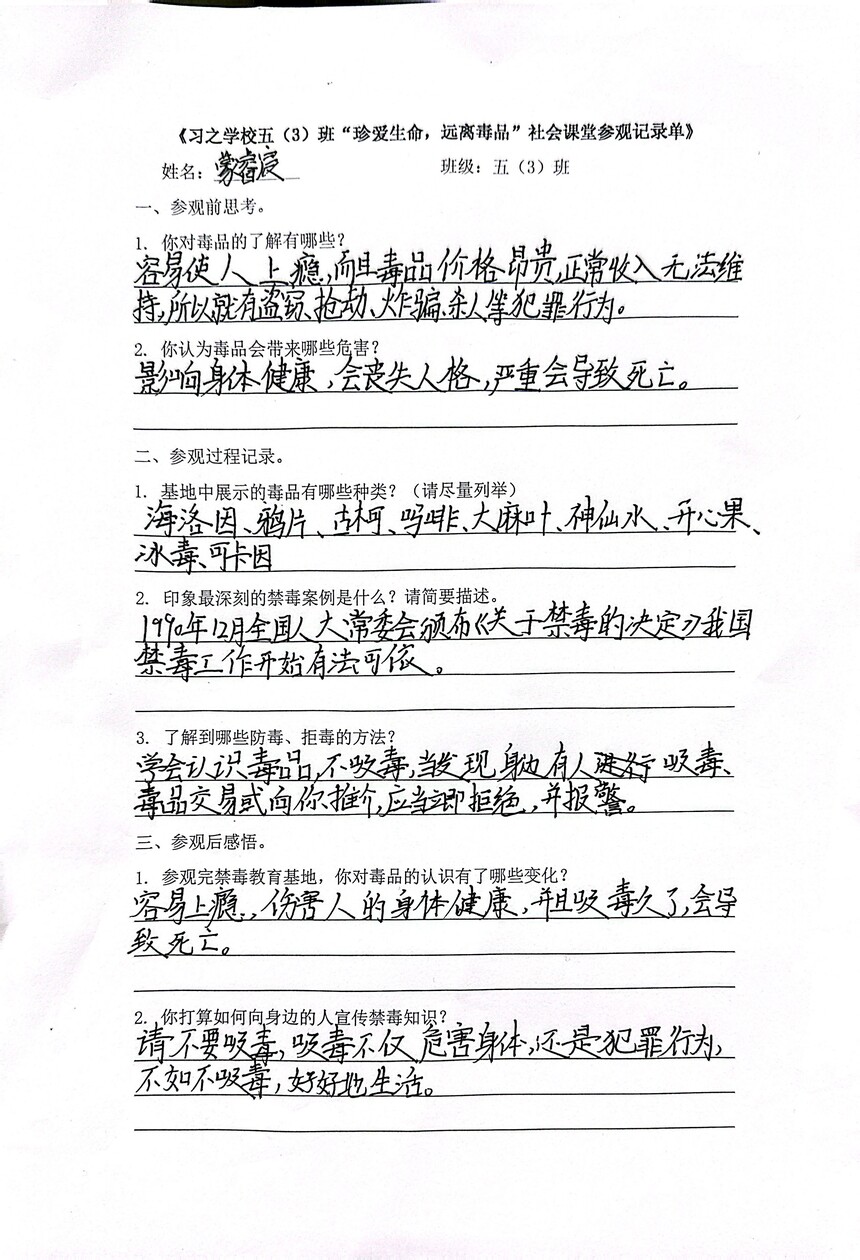 《习之学校五（3）班“珍爱生命，远离毒品”社会课堂参观记录单》
姓名：蒙睿宸 班级：五（3）班
一、参观前思考。
1. 你对毒品的了解有哪些？
容易使人上瘾，而且毒品价格昂贵，正常收入无法维
持，所以就有盗窃、抢劫、炸骗、杀人等犯罪行为。
2. 你认为毒品会带来哪些危害？
影响身体健康，会丧失人格，严重会导致死亡。
二、参观过程记录。
1. 基地中展示的毒品有哪些种类？（请尽量列举）
海洛因、鸦片、古柯、吗啡、大麻叶、神仙水、开心果、
冰毒、可卡因
2. 印象最深刻的禁毒案例是什么？请简要描述。
1990年12月全国人大常委会颁布《关于禁毒的决定》我国
禁毒工作开始有法可依。
3. 了解到哪些防毒、拒毒的方法？
学会认识毒品，不吸毒，当发现身边有人进行吸毒、
毒品交易或向你推介，应当立即拒绝，并报警。
三、参观后感悟。
1. 参观完禁毒教育基地，你对毒品的认识有了哪些变化？
容易上瘾，伤害人的身体健康，并且吸毒久了，会导
致死亡。
2. 你打算如何向身边的人宣传禁毒知识？
请不要吸毒，吸毒不仅危害身体，还是犯罪行为，
不如不吸毒，好好地生活。